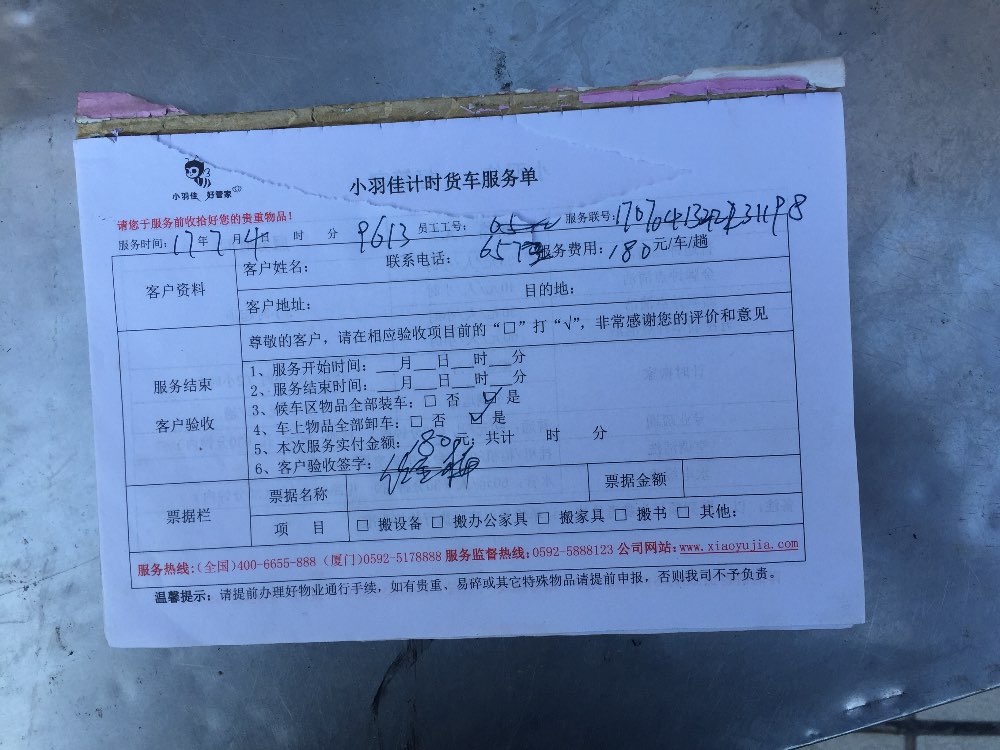 小羽佳 好管家
小羽佳计时货车服务单
请您于服务前收拾好您的贵重物品！
服务时间：17年7月4日 时 分 9613 员工工号： 服务联号：
客户资料 客户姓名： 联系电话： 服务费用：180元/车/趟
客户地址： 目的地：
服务结束 客户验收
尊敬的客户，请在相应验收项目前的“□”打“√”，非常感谢您的评价和意见
1、服务开始时间：___月___日___时___分
2、服务结束时间：___月___日___时___分
3、候车区物品全部装车：□ 否 ☑ 是
4、车上物品全部卸车：□ 否 ☑ 是
5、本次服务实付金额：180元；共计 时 分
6、客户验收签字：
票据栏 票据名称 票据金额
项 目 □ 搬设备 □ 搬办公家具 □ 搬家具 □ 搬书 □ 其他：
服务热线:(全国)400-6655-888 (厦门)0592-5178888 服务监督热线:0592-5888123 公司网站:www.xiaoyujia.com
温馨提示：请提前办理好物业通行手续，如有贵重、易碎或其它特殊物品请提前申报，否则我司不予负责。